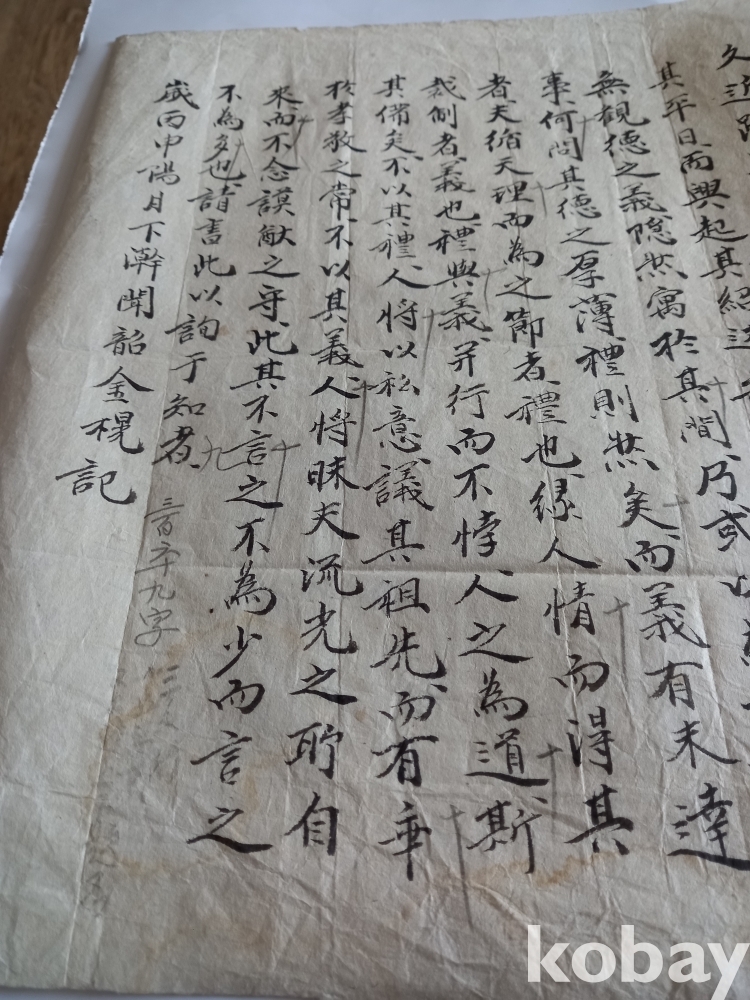 久
其平日而興起其紹述
無觀德之義隱然寓於其間乃或以
事何問其德之厚薄禮則然矣而義有未達
者夫循天理而為之節者禮也緣人情而得其
裁制者義也禮與義並行而不悖人之為道斯
其備矣不以其禮人將以私意議其祖先而有乖
於孝敬之常不以其義人將昧夫流光之所自
來而不念謨猷之守此其不言之不為少而言之
不為多也請書此以詢于知者
歲丙申陽月下澣聞韶金榥記
kobay